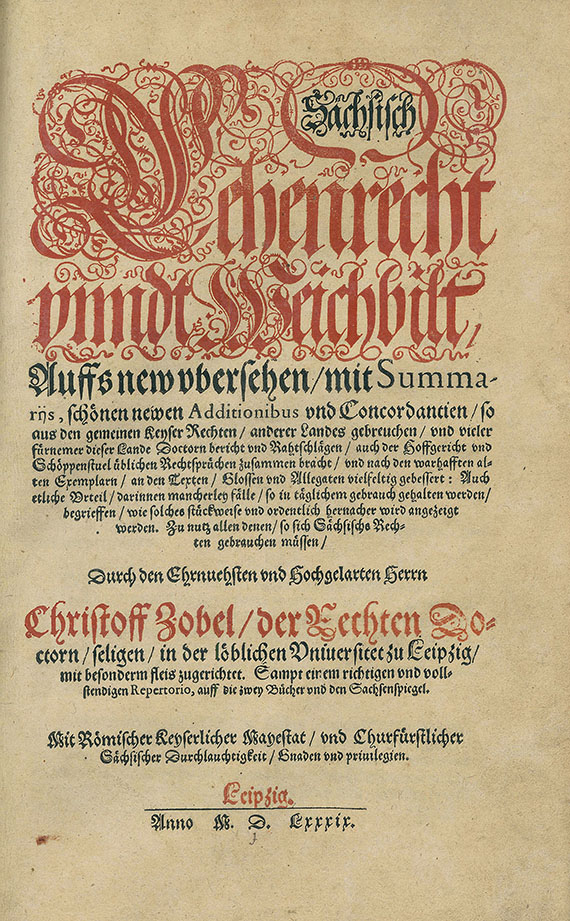 Sächsisch
Lehenrecht
vnndt Weichbilt/
Auffs new vbersehen/mit Summa-
rijs, schönen newen Additionibus vnd Concordancien/so
aus den gemeinen Keyser Rechten/anderer Landes gebreuchen/vnd vieler
fürnemer dieser Lande Doctorn bericht vnd Rahtschlägen/auch der Hoffgericht vnd
Schöppenstuel üblichen Rechtsprüchen zusammen bracht/vnd nach den warhafften al-
ten Exemplarn/an den Texten/Glossen vnd Allegaten vielfeltig gebessert: Auch
etliche Vrteil/darinnen mancherley fälle/so in täglichem gebrauch gehalten werden/
begrieffen/wie solches stückweise vnd ordentlich hernacher wird angezeigt
werden. Zu nutz allen denen/so sich Sächsischs Rech-
ten gebrauchen müssen/
Durch den Ehrnuehsten vnd Hochgelarten Herrn
Christoff Zobel/der Rechten Do-
ctorn/seligen/in der löblichen Vniuersitet zu Leipzig/
mit besonderm fleis zugerichtet. Sampt einem richtigen vnd voll-
stendigen Repertorio, auff die zwey Bücher vnd den Sachsenspiegel.
Mit Römischer Keyserlicher Mayestat/vnd Churfürstlicher
Sächsischer Durchlauchtigkeit/Gnaden vnd priuilegien.
Leipzig.
Anno M. D. LXXXIX.